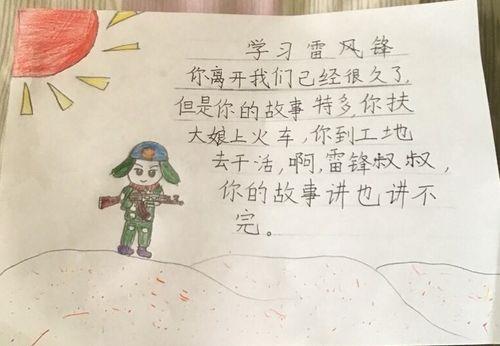 学习雷风锋
你离开我们己经很久了,
但是你的故事特多,你扶
大娘上火车,你到工地
去干活,啊,雷锋叔叔,
你的故事讲也讲不
完。